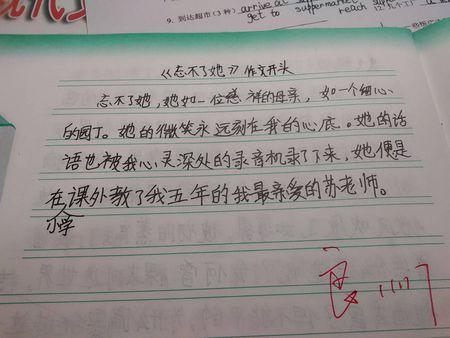 9. 到达超市(3种) arrive at
get to suppermarket reach
《忘不了她》作文开头
忘不了她,她如一位慈祥的母亲,如一个细心
的园丁。她的微笑永远刻在我的心底。她的话
语也被我心灵深处的录音机录了下来,她便是
在课外教了我五年的我最亲爱的苏老师。
小学